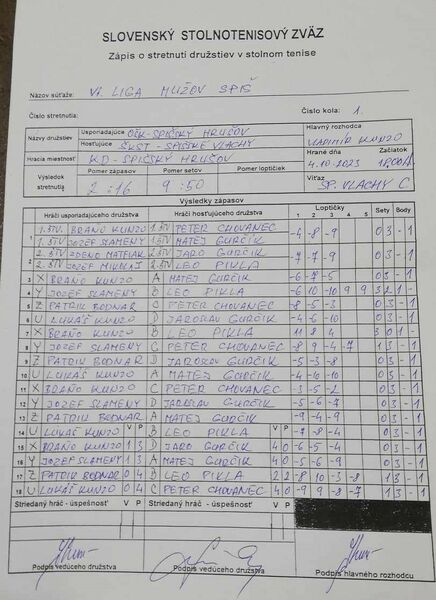 SLOVENSKÝ STOLNOTENISOVÝ ZVÄZ
Zápis o stretnutí družstiev v stolnom tenise
Názov súťaže: VI. LIGA MUŽOV SPIŠ
Číslo stretnutia: Číslo kola: 1.
Názvy družstiev Usporiadajúce OŠK-SPIŠSKÝ HRUŠOV Hlavný rozhodca VLADIMÍR KUNZO
Hosťujúce ŠKST-SPIŠSKÉ VLACHY Hrané dňa Začiatok
Hracia miestnosť KD-SPIŠSKÝ HRUŠOV 4.10.2023
Výsledok stretnutia Pomer zápasov Pomer setov Pomer loptičiek Víťaz
2 : 16 9 : 50 SP. VLACHY C
Výsledky zápasov
Hráči usporiadajúceho družstva Hráči hosťujúceho družstva Loptičky Sety Body
1 2 3 4 5
1.ŠTV BRAŇO KUNZO 1.ŠTV PETER CHOVANEC -6 -8 -9 0 3 - 1
1.ŠTV JOZEF SLAMENÝ 1.ŠTV MATEJ GURČÍK
2.ŠTV ZDENO MATFIAK 2.ŠTV JARO GURČÍK -7 -7 -9 0 3 - 1
2.ŠTV JOZEF 2.ŠTV LEO PIKLA
3 X BRAŇO KUNZO A MATEJ GURČÍK -6 -7 -5 0 3 - 1
4 Y JOZEF SLAMENÝ B LEO PIKLA -6 10 -10 9 9 3 2 1 -
5 Z PATRIK BODNAR C PETER CHOVANEC -8 -5 -3 0 3 - 1
6 U LUKÁŠ KUNZO D JAROSLAV GURČÍK -4 -6 -10 0 3 - 1
7 X BRAŇO KUNZO B LEO PIKLA 11 8 4 3 0 1 -
8 Y JOZEF SLAMENÝ C PETER CHOVANEC -8 9 -4 -7 1 3 - 1
9 Z PATRIK BODNAR D JAROSLAV GURČÍK -5 -3 -8 0 3 - 1
10 U LUKÁŠ KUNZO A MATEJ GURČÍK -4 -10 -10 0 3 - 1
11 X BRAŇO KUNZO C PETER CHOVANEC -3 -5 -2 0 3 - 1
12 Y JOZEF SLAMENÝ D JAROSLAV GURČÍK -5 -6 -7 0 3 - 1
13 Z PATRIK BODNAR A MATEJ GURČÍK -9 -4 -9 0 3 - 1
14 U LUKÁŠ KUNZO V P B LEO PIKLA V P -7 -8 -8 0 3 - 1
15 X BRAŇO KUNZO 1 3 D JARO GURČÍK 4 0 -6 -5 -4 0 3 - 1
16 Y JOZEF SLAMENÝ 1 3 A MATEJ GURČÍK 4 0 -5 -6 -9 0 3 - 1
17 Z PATRIK BODNAR 0 4 B LEO PIKLA 2 2 -8 10 -3 -8 1 3 - 1
18 U LUKÁŠ KUNZO 0 4 C PETER CHOVANEC 4 0 -9 9 -8 -7 1 3 - 1
Striedaný hráč - úspešnosť V P Striedaný hráč - úspešnosť V P
Podpis vedúceho družstva Podpis vedúceho družstva Podpis hlavného rozhodcu